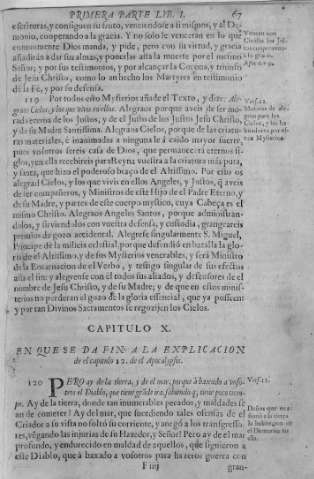 PRIMERA PARTE LIB. I. 67
escrituras, y consiguan su fruto, venciendose a si mismos, y al De-
monio, cooperando a la gracia. Y no solo le venceran en lo que
comunmente Dios manda, y pide, pero con su virtud, y gracia
añadiràn a dar sus almas, y ponerlas asta la muerte por el mesmo
Señor; y por sus testimonios, y por alcançar la Corona, y triunfo
de Jesu Christo, como lo an hecho los Martyres en testimonio
de la Fe, y por su defensa.
119 Por todos estos Mysterios añade el Texto, y dize: Ale-
graos Cielos, y los que vivis en ellos. Alegraos porque aveis de ser mo-
rada eterna de los Justos, y de el Justo de los Justos Jesu Christo,
y de su Madre Santissima. Alegraos Cielos, porque de las criatu-
ras materiales, è inanimadas a ninguna le à caido mayor suerte,
pues vosotros sereis casa de Dios, que permanecerà eternos si-
glos, y en ella recibireis para Reyna vuestra a la criatura mas pura,
y santa, que hizo el poderoso braço de el Altissimo. Por esto os
alegrad Cielos, y los que vivis en ellos Angeles, y Justos, que aveis
de ser compañeros, y Ministros de este Hijo de el Padre Eterno, y
de su Madre, y partes de este cuerpo mystico, cuya Cabeça es el
mismo Christo. Alegraos Angeles Santos, porque administran-
dolos, y sirviendolos con vuestra defensa, y custodia, grangeareis
premios de gozo accidental. Alegrese singularmente S. Miguel,
Principe de la milicia celestial, porque defendiò en batalla la glo-
ria de el Altissimo, y de sus Mysterios venerables, y serà Ministro
de la Encarnacion de el Verbo, y testigo singular de sus efectos
asta el fin: y alegrense con el todos sus aliados, y defensores de el
nombre de Jesu Christo, y de su Madre; y de que en estos minis-
terios no perderan el gozo de la gloria essencial, que ya posseen:
y por tan Divinos Sacramentos se regozijen los Cielos.
CAPITULO X.
EN QUE SE DA FIN A LA EXPLICACION
de el capitulo 12. de el Apocalypsis.
120 PERO ay de la tierra, y de el mar, porque à baxado a voso-
tros el Diablo, que tiene grande ira, sabiendo q̃ tiene poco tiem-
po. Ay de la tierra, donde tan innumerables pecados, y maldades se
an de cometer! Ay del mar, que sucediendo tales ofensas de el
Criador a su vista no soltò su corriente, y anegò a los transgresso-
res, vengando las injurias de su Hazedor, y Señor! Pero ay de el mar
profundo, y endurecido en maldad de aquellos, que siguieron a
este Diablo, que à baxado a vosotros para hazeros guerra con
F iiij gran-
Vers. 12.
Vers. 12.